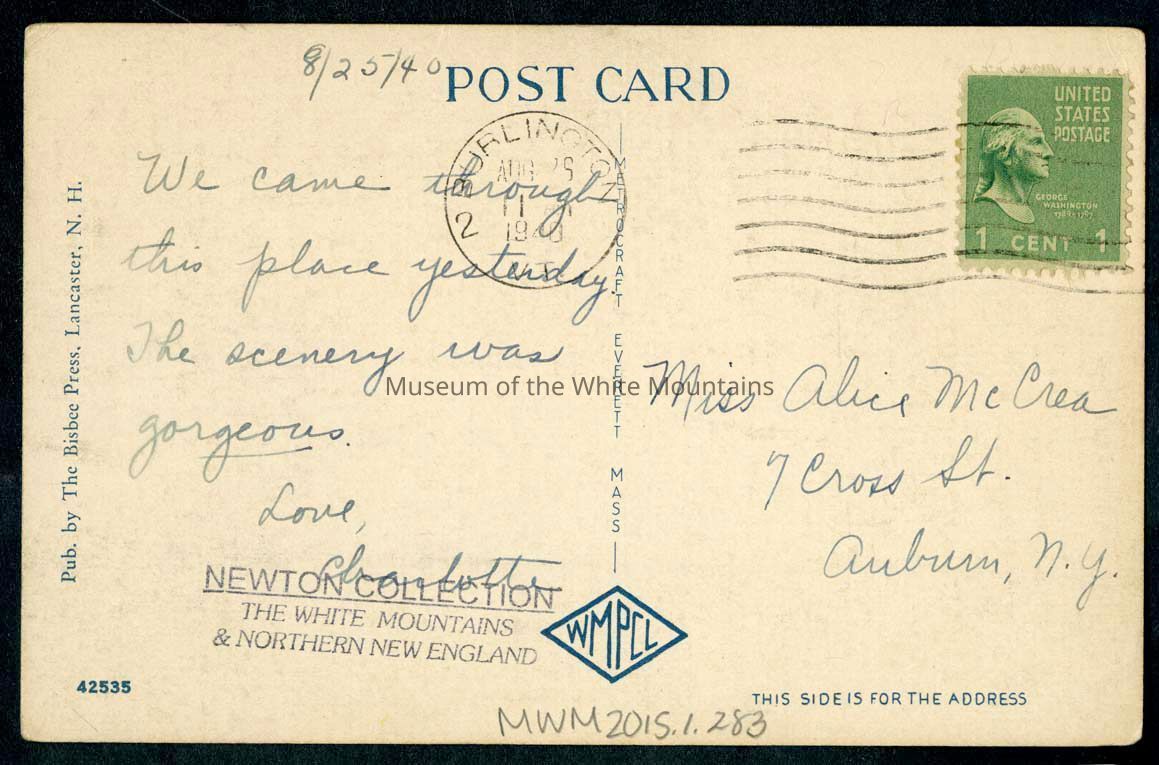 8/25/40
POST CARD
UNITED
STATES
POSTAGE
GEORGE
WASHINGTON
1789-1797
1 CENT 1
BURLINGTON
AUG 26
1940
VT.
2
We came through
this place yesterday.
The scenery was
gorgeous.
Love,
Charlotte
Miss Alice McCrea
7 Cross St.
Auburn, N.Y.
Museum of the White Mountains
Pub. by The Bisbee Press, Lancaster, N. H.
METROCRAFT EVERETT MASS
NEWTON COLLECTION
THE WHITE MOUNTAINS
& NORTHERN NEW ENGLAND
WMPCL
42535
THIS SIDE IS FOR THE ADDRESS
MWM2015.1.283